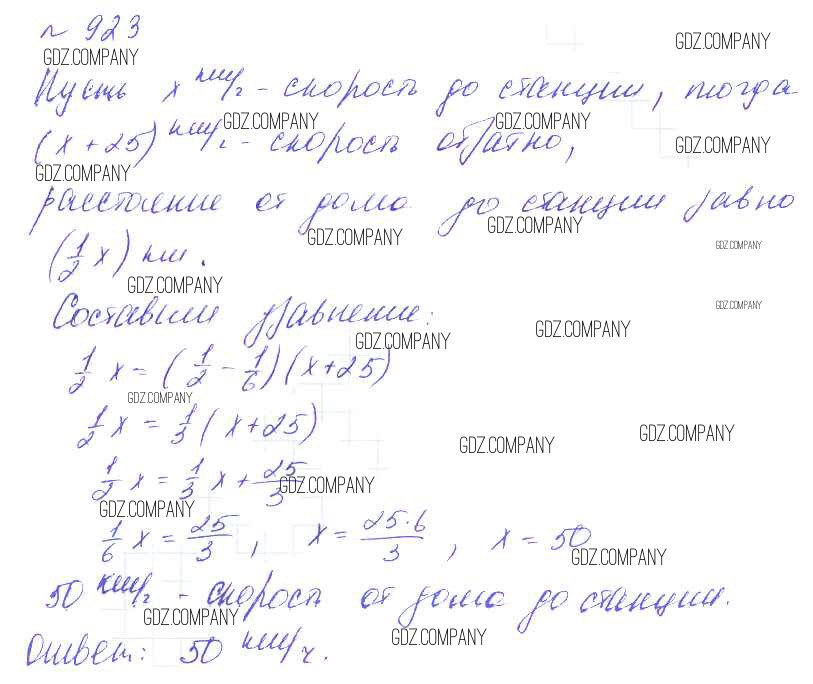 № 923
GDZ.COMPANY
GDZ.COMPANY
Пусть x км/ч - скорость до станции, тогда
GDZ.COMPANY
GDZ.COMPANY
(x+25) км/ч - скорость обратно,
GDZ.COMPANY
GDZ.COMPANY
расстояние от дома до станции равно
GDZ.COMPANY
GDZ.COMPANY
GDZ.COMPANY
(1/2 x) км.
GDZ.COMPANY
GDZ.COMPANY
Составим уравнение:
GDZ.COMPANY
GDZ.COMPANY
1/2 x = (1/2 - 1/6)(x+25)
GDZ.COMPANY
1/2 x = 1/3 (x+25)
GDZ.COMPANY
GDZ.COMPANY
1/2 x = 1/3 x + 25/3
GDZ.COMPANY
GDZ.COMPANY
1/6 x = 25/3, x = 25·6/3, x = 50
GDZ.COMPANY
50 км/ч - скорость от дома до станции.
GDZ.COMPANY
GDZ.COMPANY
Ответ: 50 км/ч.